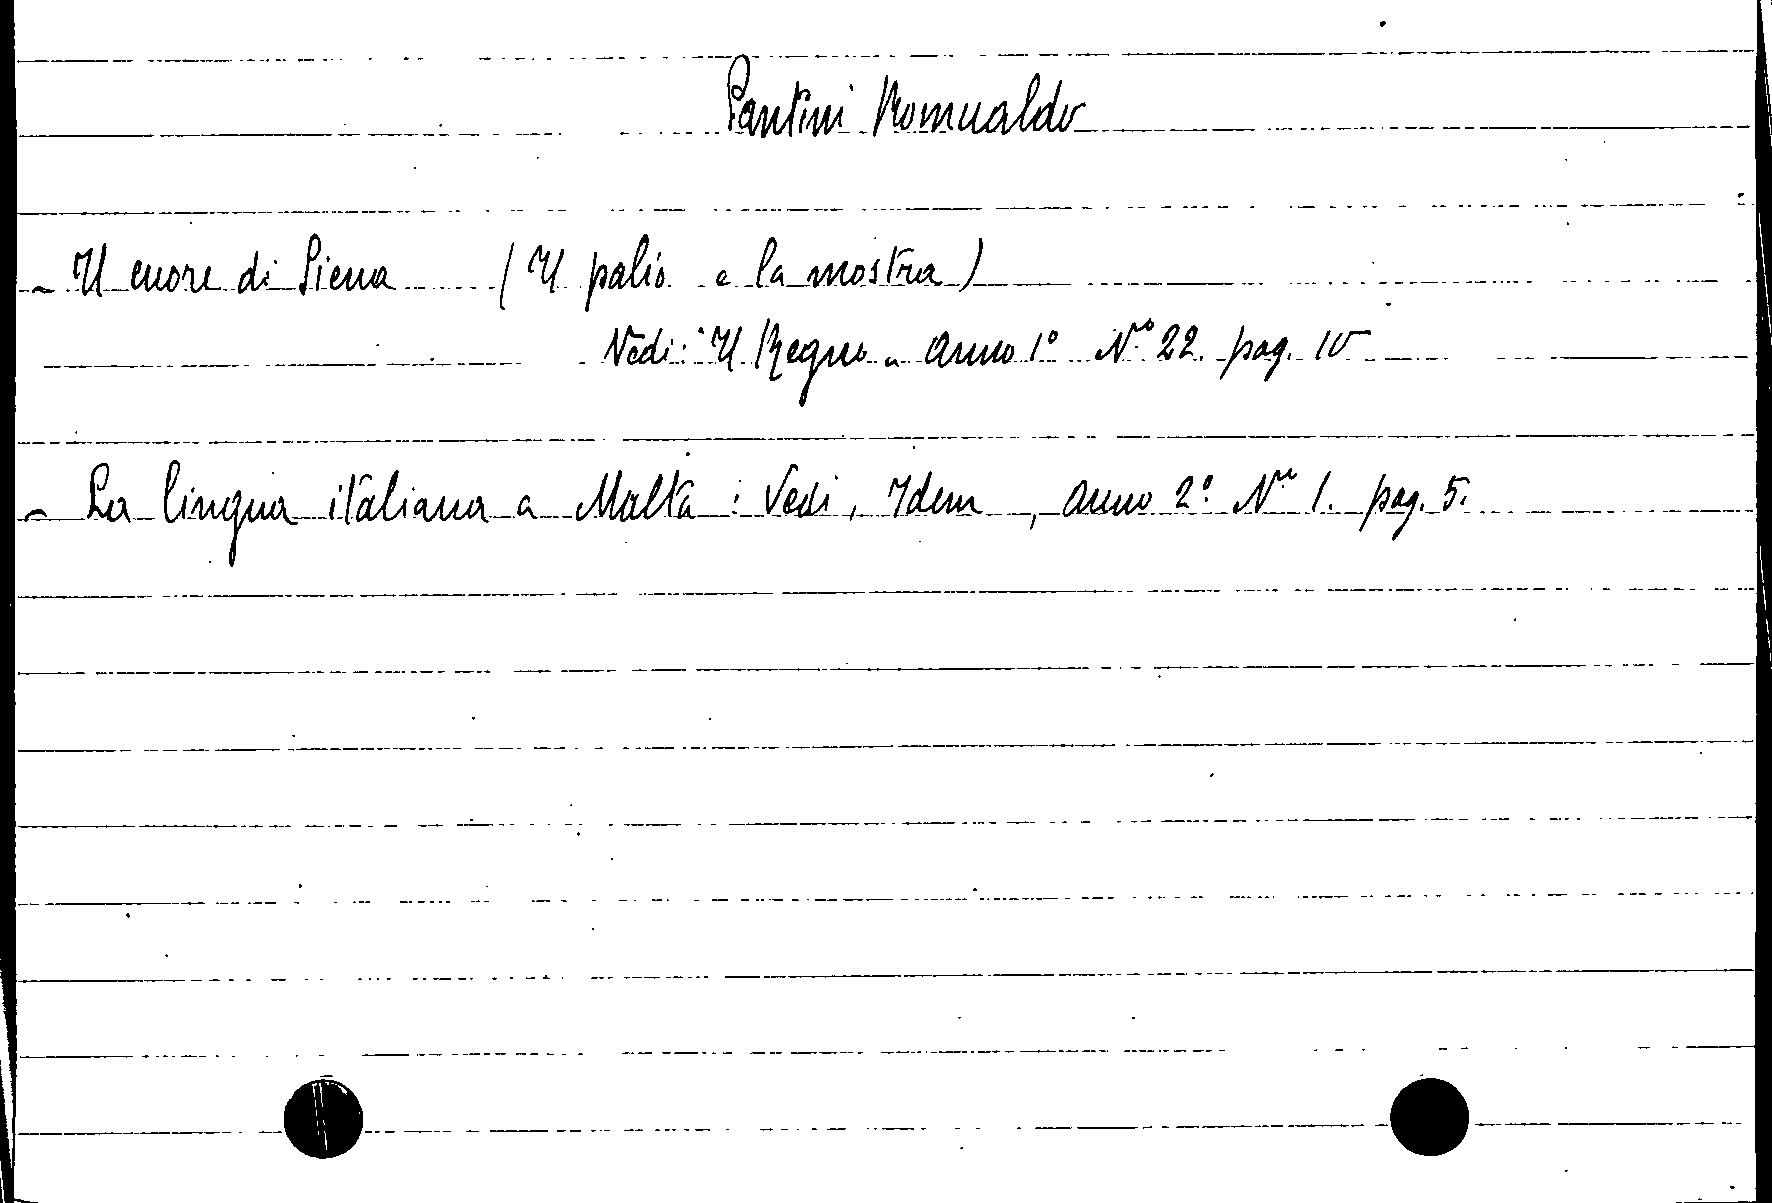 Pantini Romualdo
- Il cuore di Siena ( Il palio e la mostra )
Vedi: Il Regno - anno 1° N.ro 22. pag. 10
- La lingua italiana a Malta : Vedi, Idem , anno 2° N.ro 1. pag. 5.